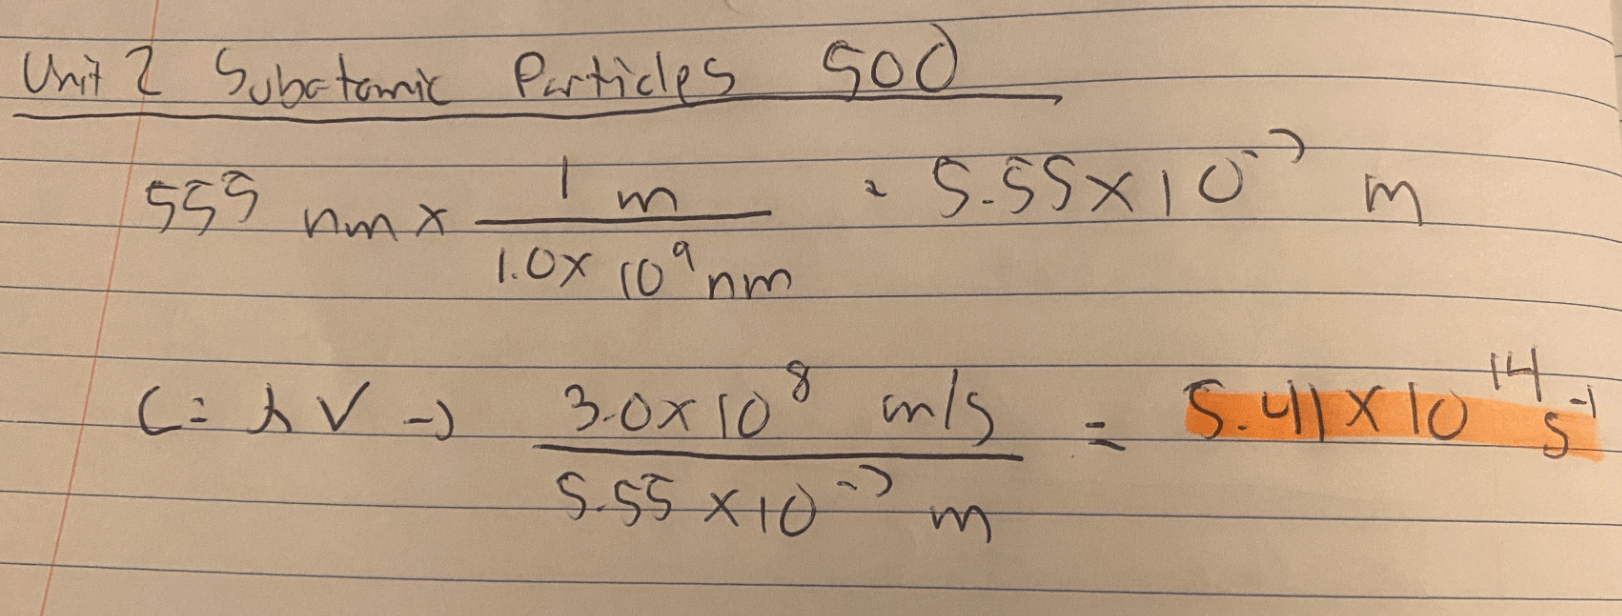 Unit 2 Subatomic Particles 500
555 nm x 1 m / 1.0 x 10⁹ nm = 5.55 x 10⁻⁷ m
C = λV → 3.0 x 10⁸ m/s / 5.55 x 10⁻⁷ m = 5.41 x 10¹⁴ s⁻¹